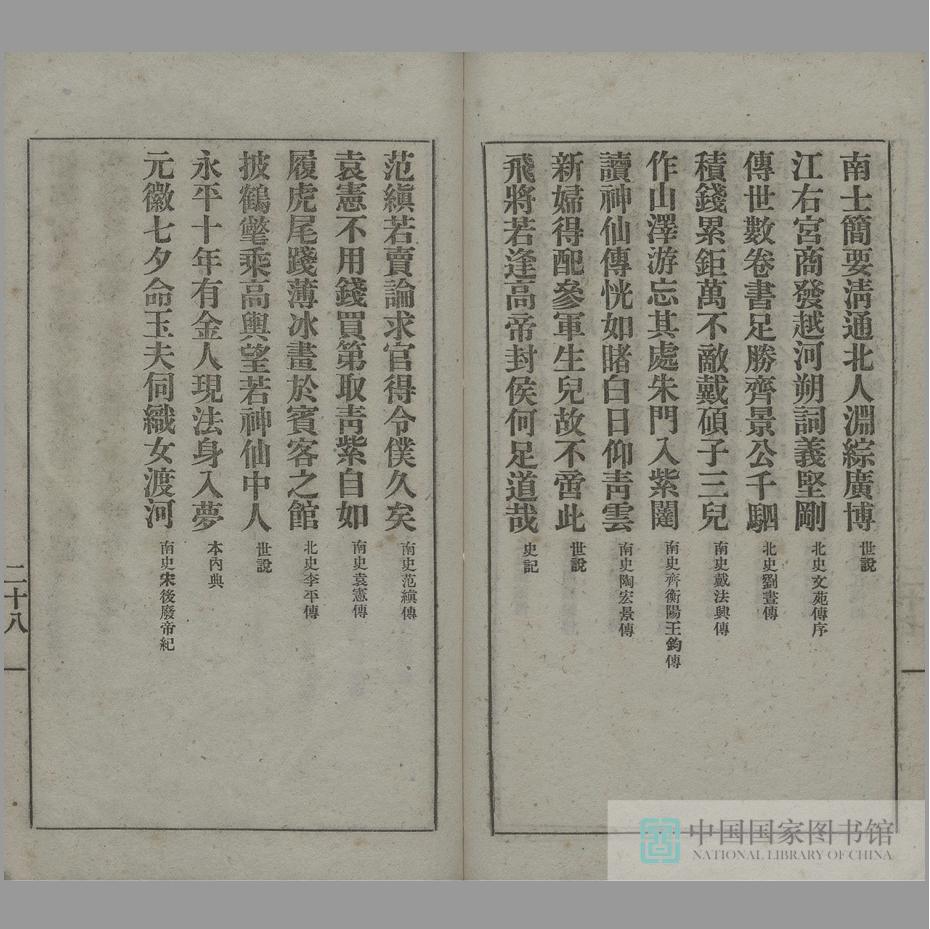 南士簡要淸通北人淵綜廣博 世說
江右宮商發越河朔詞義堅剛 北史文苑傳序
傳世數卷書足勝齊景公千駟 北史劉晝傳
積錢累鉅萬不敵戴碩子三兒 南史戴法興傳
作山澤游忘其處朱門入紫闥 南史齊衡陽王鈞傳
讀神仙傳恍如睹白日仰靑雲 南史陶宏景傳
新婦得配參軍生兒故不啻此 世說
飛將若逢高帝封侯何足道哉 史記
范縝若賣論求官得令僕久矣 南史范縝傳
袁憲不用錢買第取靑紫自如 南史袁憲傳
履虎尾踐薄冰畫於賓客之館 北史李平傳
披鶴氅乘高輿望若神仙中人 世說
永平十年有金人現法身入夢 本內典
元徽七夕命玉夫伺織女渡河 南史宋後廢帝紀
二十八
中国国家图书馆
NATIONAL LIBRARY OF CHINA